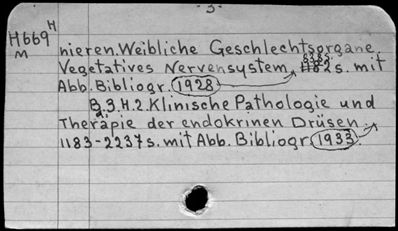 -3-
H669 H
M
nieren. Weibliche Geschlechtsorgane.
Vegetatives Nervensystem, 1182 s. mit
Abb. Bibliogr. 1928
B.3.H.2. Klinische Pathologie und
Therapie der endokrinen Drüsen.
1183-2237 s. mit Abb. Bibliogr. 1933